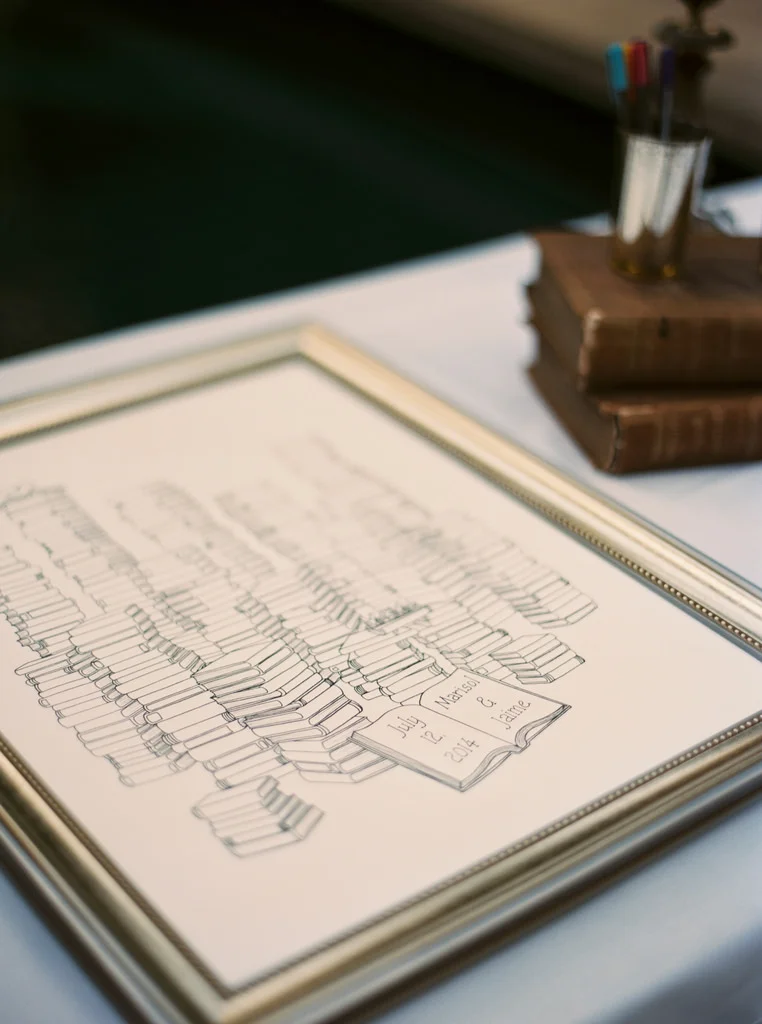 July
12,
2014
Marisol
&
Jaime